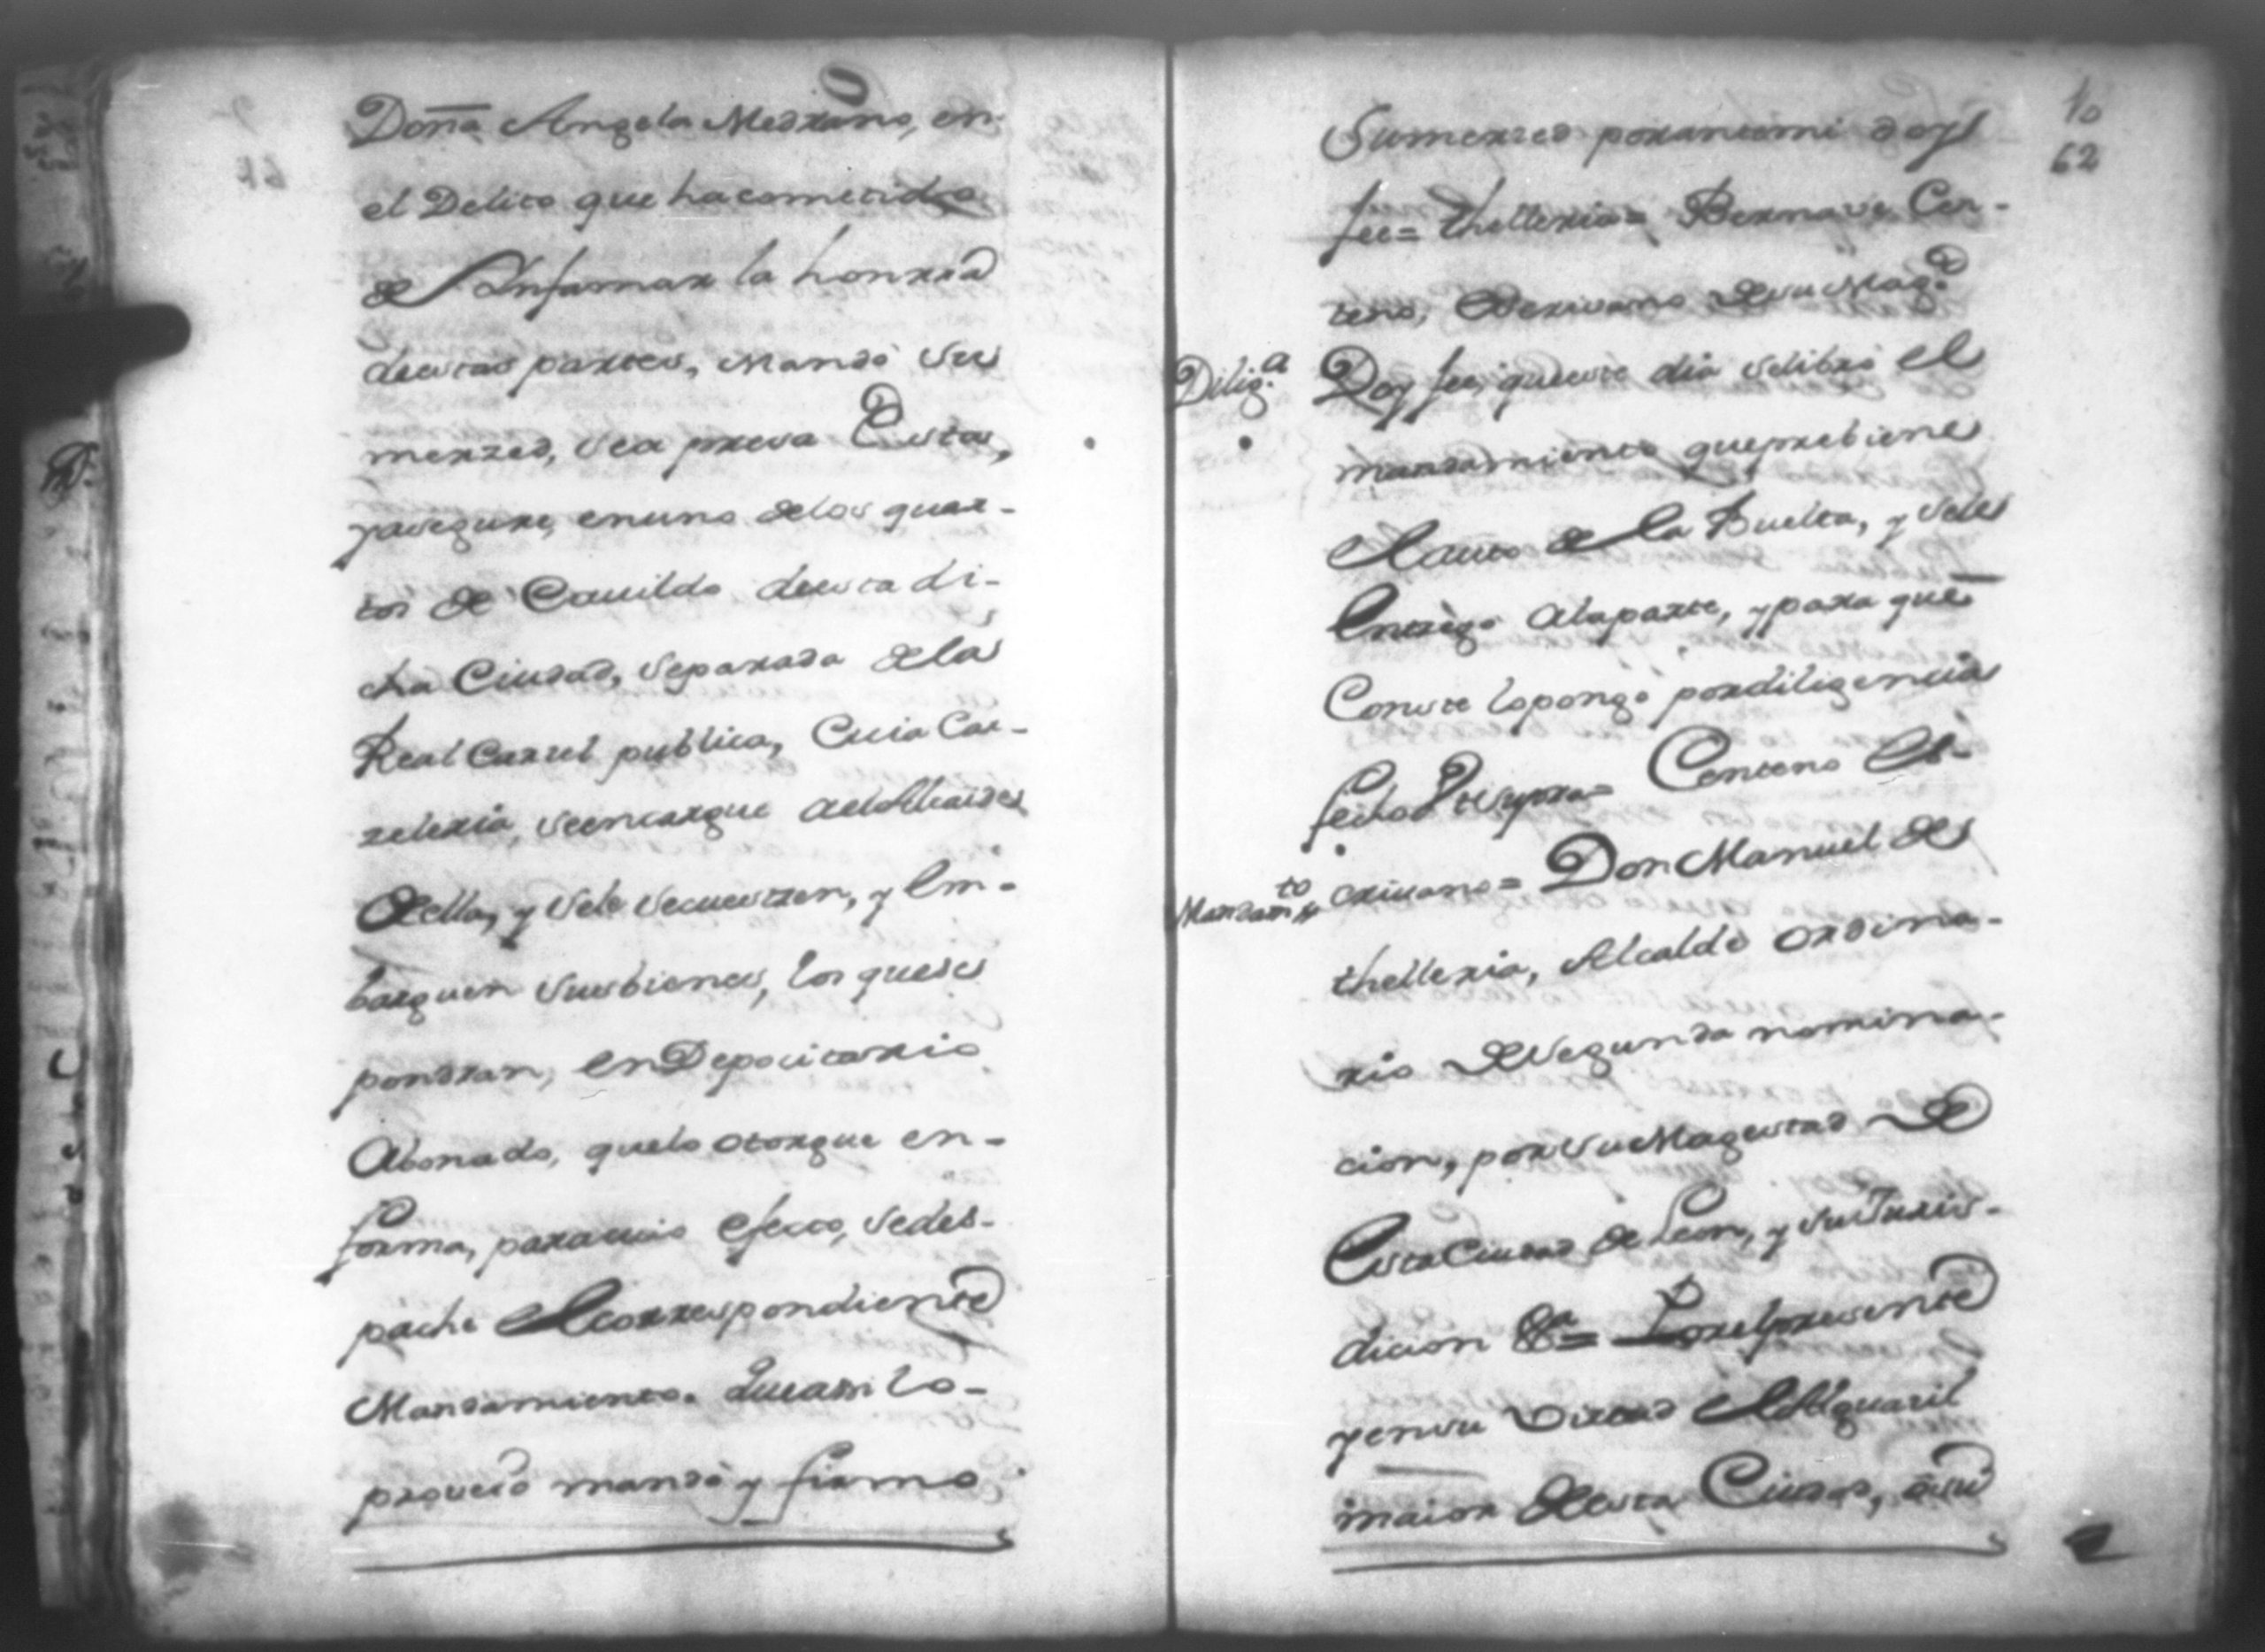 Doña Angela Medrano, en
el Delito que ha cometido
de Infamar la honrra
de estas partes, Mando Su
merzed, sea presa Esta,
y asegure, en uno de los quar-
tos de Cauildo de esta di-
cha Ciudad, separada de la
Real Carzel publica, Cuia Car-
zeleria, se encargue al Alcaide
de ella, y se le secuestren, y Em-
barguen sus bienes, los que se
pondran, en Depocitario
Abonado, que lo otorgue en
forma, para cuio efecto, se des-
pache el correspondiente
Mandamiento. Que assi lo
proveió mandó y firmó
10
62
Su merzed por ante mi doy
fee= thelleria= Bernave Cen-
teno, Escrivano de su Mag.d
Dilig.a
Doy fee, que este dia se libró el
mandamiento que prebiene
el auto de la Buelta, y se le
Entregó a la parte, y para que
Conste lo pongo por diligencia
fecho Ut supra= Centeno Es-
Mandam.to
crivano= Don Manuel de
thelleria, Alcalde ordina-
rio de segunda nomina-
cion, por su Magestad de
Esta Ciudad de Leon, y su Juris-
dicion &a= Por el presente
y en su virtud el Alguazil
maior de esta Ciudad, o su